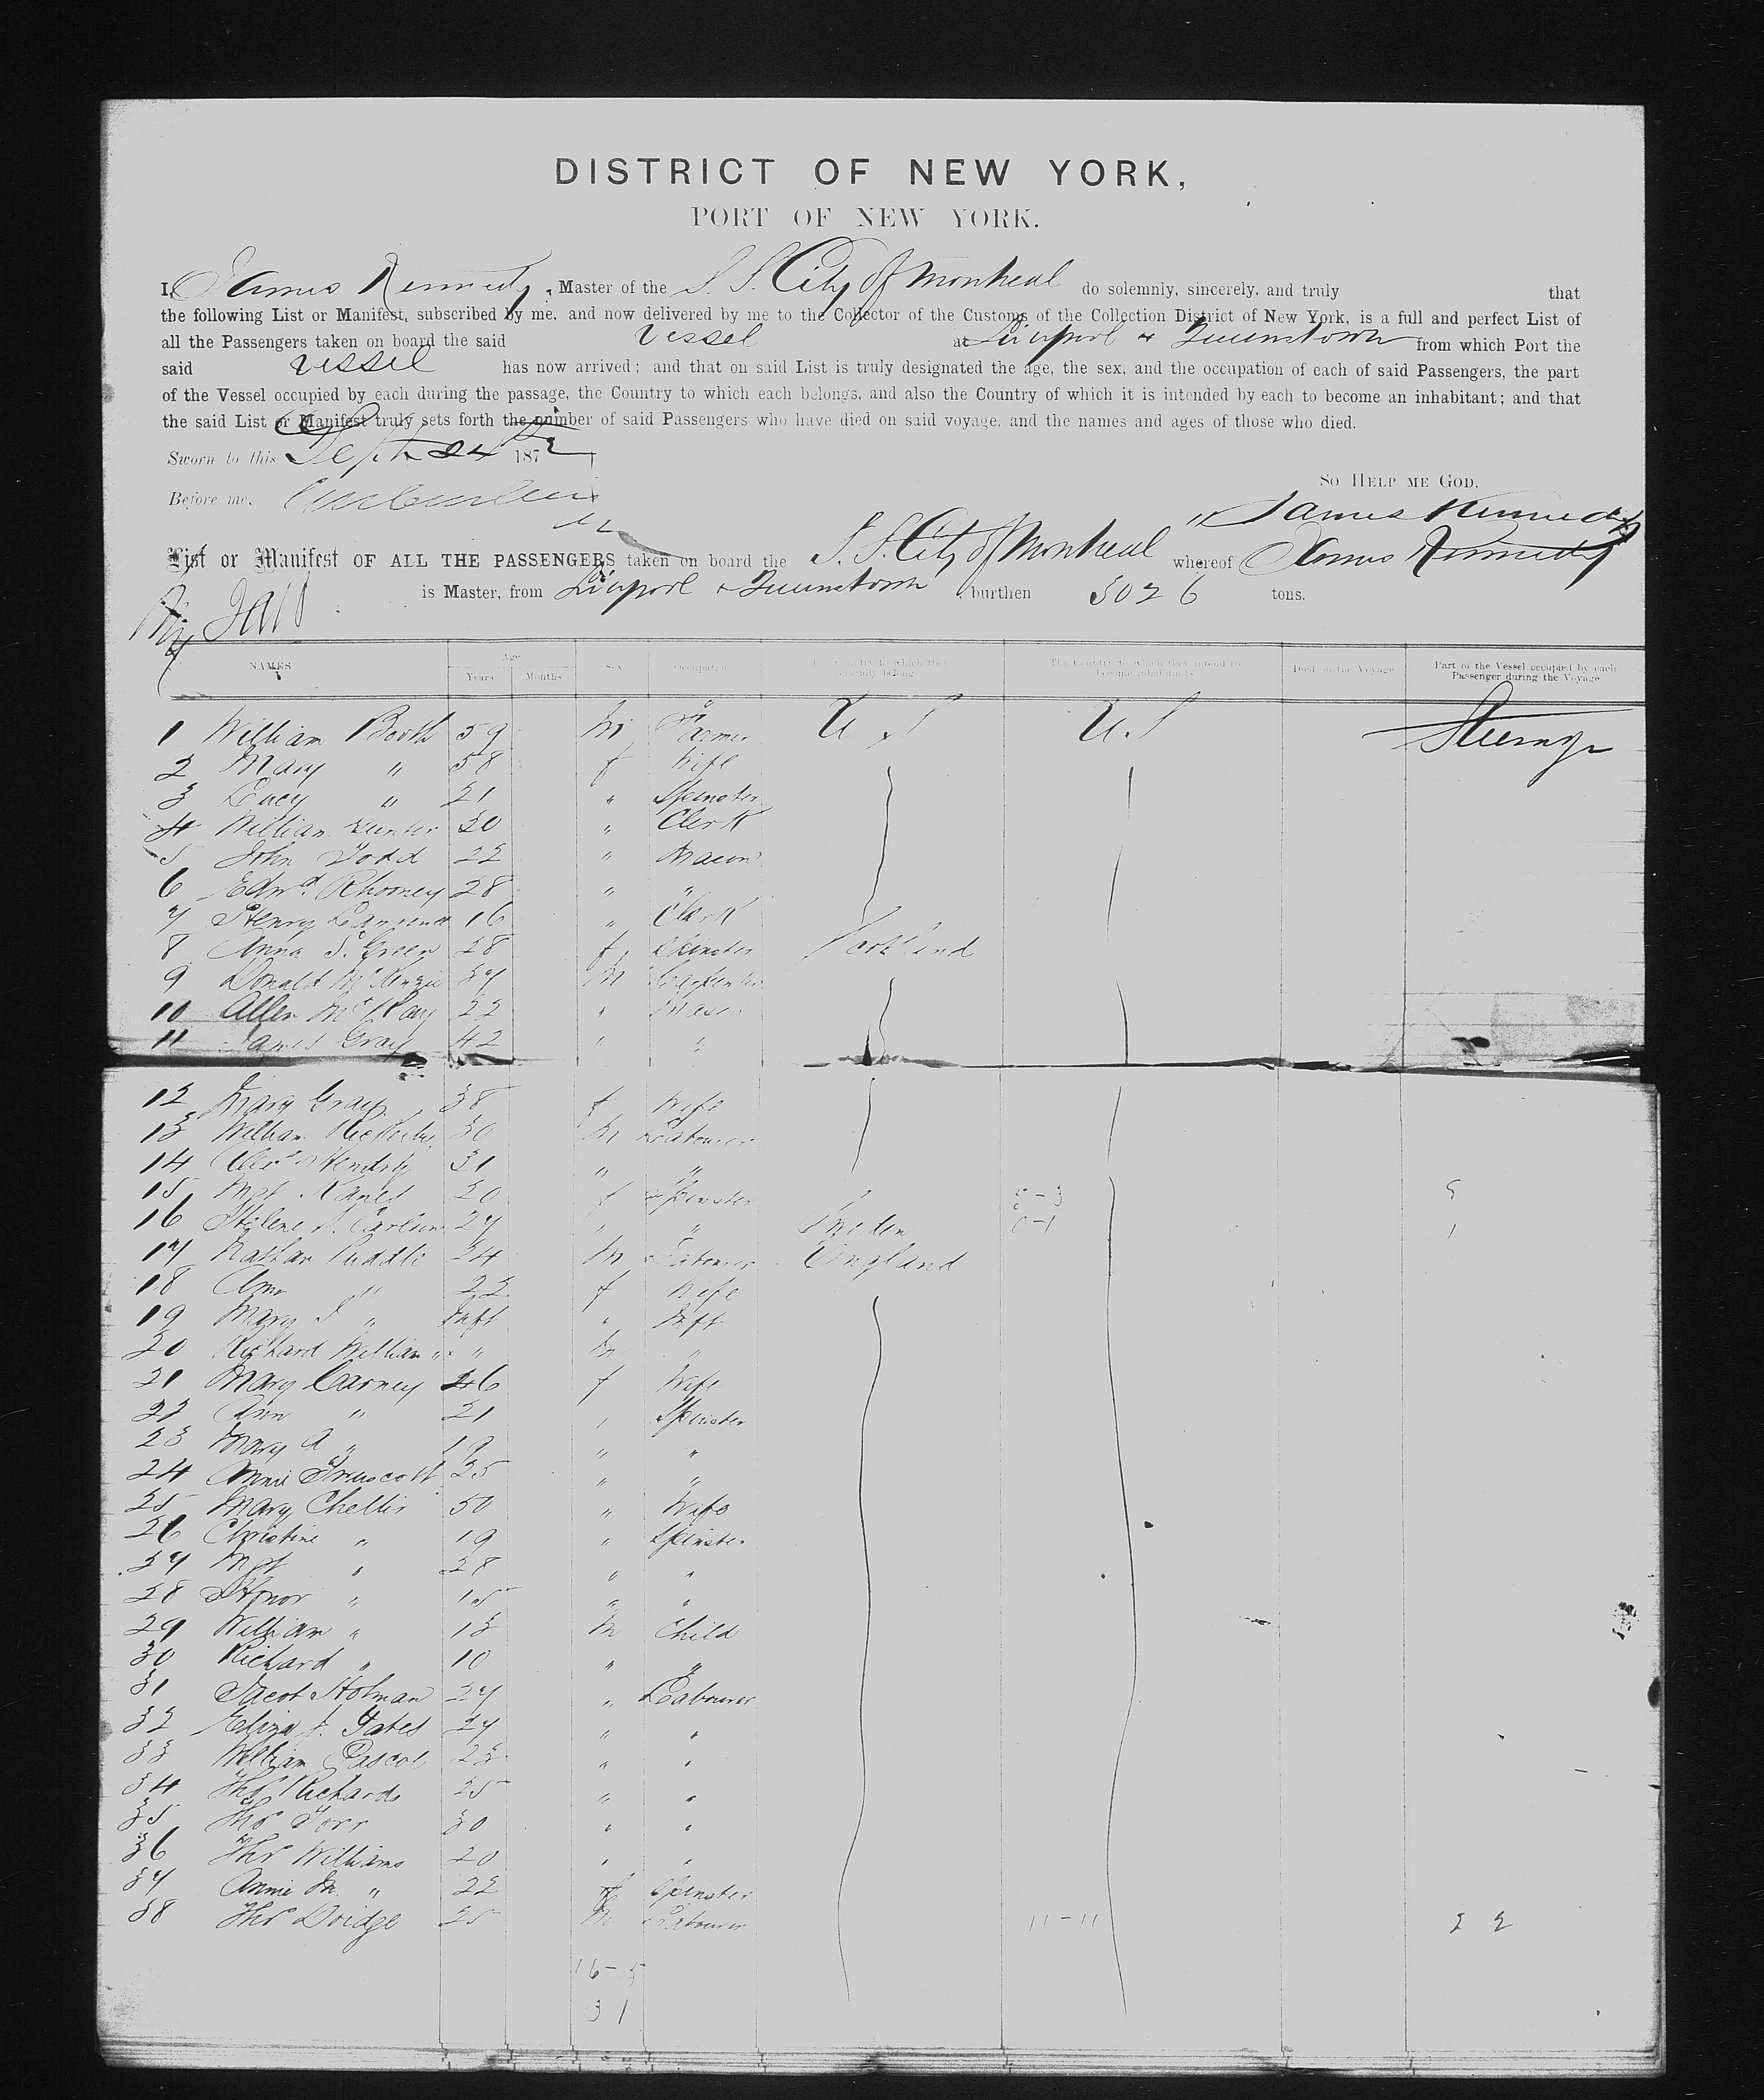 DISTRICT OF NEW YORK,
PORT OF NEW YORK.
I, James Kennedy, Master of the S. S. City of Montreal do solemnly, sincerely, and truly that
the following List or Manifest, subscribed by me, and now delivered by me to the Collector of the Customs of the Collection District of New York, is a full and perfect List of
all the Passengers taken on board the said Vessel at Liverpool & Queenstown from which Port the
said Vessel has now arrived; and that on said List is truly designated the age, the sex, and the occupation of each of said Passengers, the part
of the Vessel occupied by each during the passage, the Country to which each belongs, and also the Country of which it is intended by each to become an inhabitant; and that
the said List or Manifest truly sets forth the number of said Passengers who have died on said voyage, and the names and ages of those who died.
Sworn to this Sept 24 1872
So Help me God.
Before me,
James Kennedy
List or Manifest OF ALL THE PASSENGERS taken on board the S. S. City of Montreal whereof James Kennedy
is Master, from Liverpool & Queenstown, burthen 3026 tons.
NAMES Age Years Months Sex Occupation The Country to which they severally belong The Country to which they intend to become inhabitants Died on the Voyage Part of the Vessel occupied by each Passenger during the Voyage
1 William Booth 59 M Farmer U S U.S Steerage
2 Mary " 58 f Wife
3 Lucy " 21 " Spinster
4 William Hunter 30 " Clerk
5 John Todd 22 " Mason
6 Edwd. Rhooney 28 " "
7 Henry Lawrence 16 " Clerk
8 Anna S. Green 28 f. Spinster
9 Donald McKenzie 37 M Carpenter
10 Allen McKay 22 " Mason
11 James Gray 42 " "
12 Mary Gray 38 f Wife
13 William 30 M Labourer
14 Alexr Hendry 31 " "
15 Mgt 20 f Spinster
16 Helene S. Carlson 27 " " Sweden
17 Puddle 24 M Labourer England
18 Ann " 22 f Wife
19 Mary J " Inft " Inft
20 Richard William " " M "
21 Mary Carney 46 f Wife
22 Ann " 21 " Spinster
23 Mary A " 19 " "
24 Annie Truscott 25 " "
25 Mary Chellis 50 " Wife
26 Christine " 19 " Spinster
27 Mgt " 28 " "
28 Honor " 15 " "
29 William " 13 M Child
30 Richard " 10 " "
31 Jacob Holman 27 " Labourer
32 Eliza J. Yates 27 " "
33 William Pascoe 23 " "
34 Thos Richards 25 " "
35 Thos Torr 30 " "
36 Thos Williams 20 " "
37 Annie M. " 22 f Spinster
38 Thos Doidge 25 M Labourer 11-11